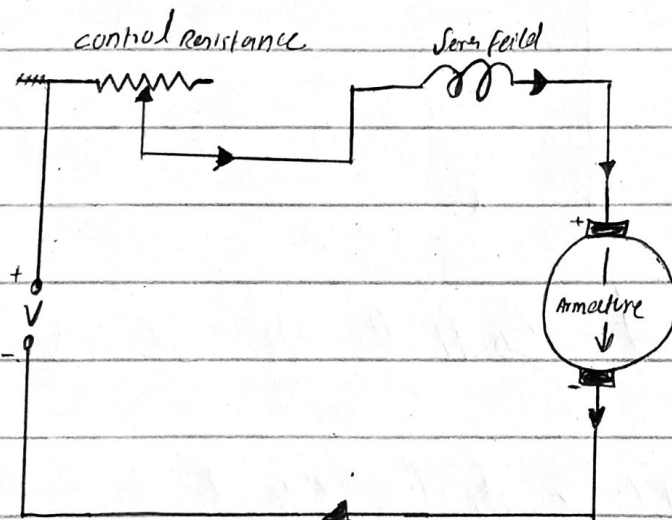 control Resistance
Series feild
+
Armature
+
V
-
-